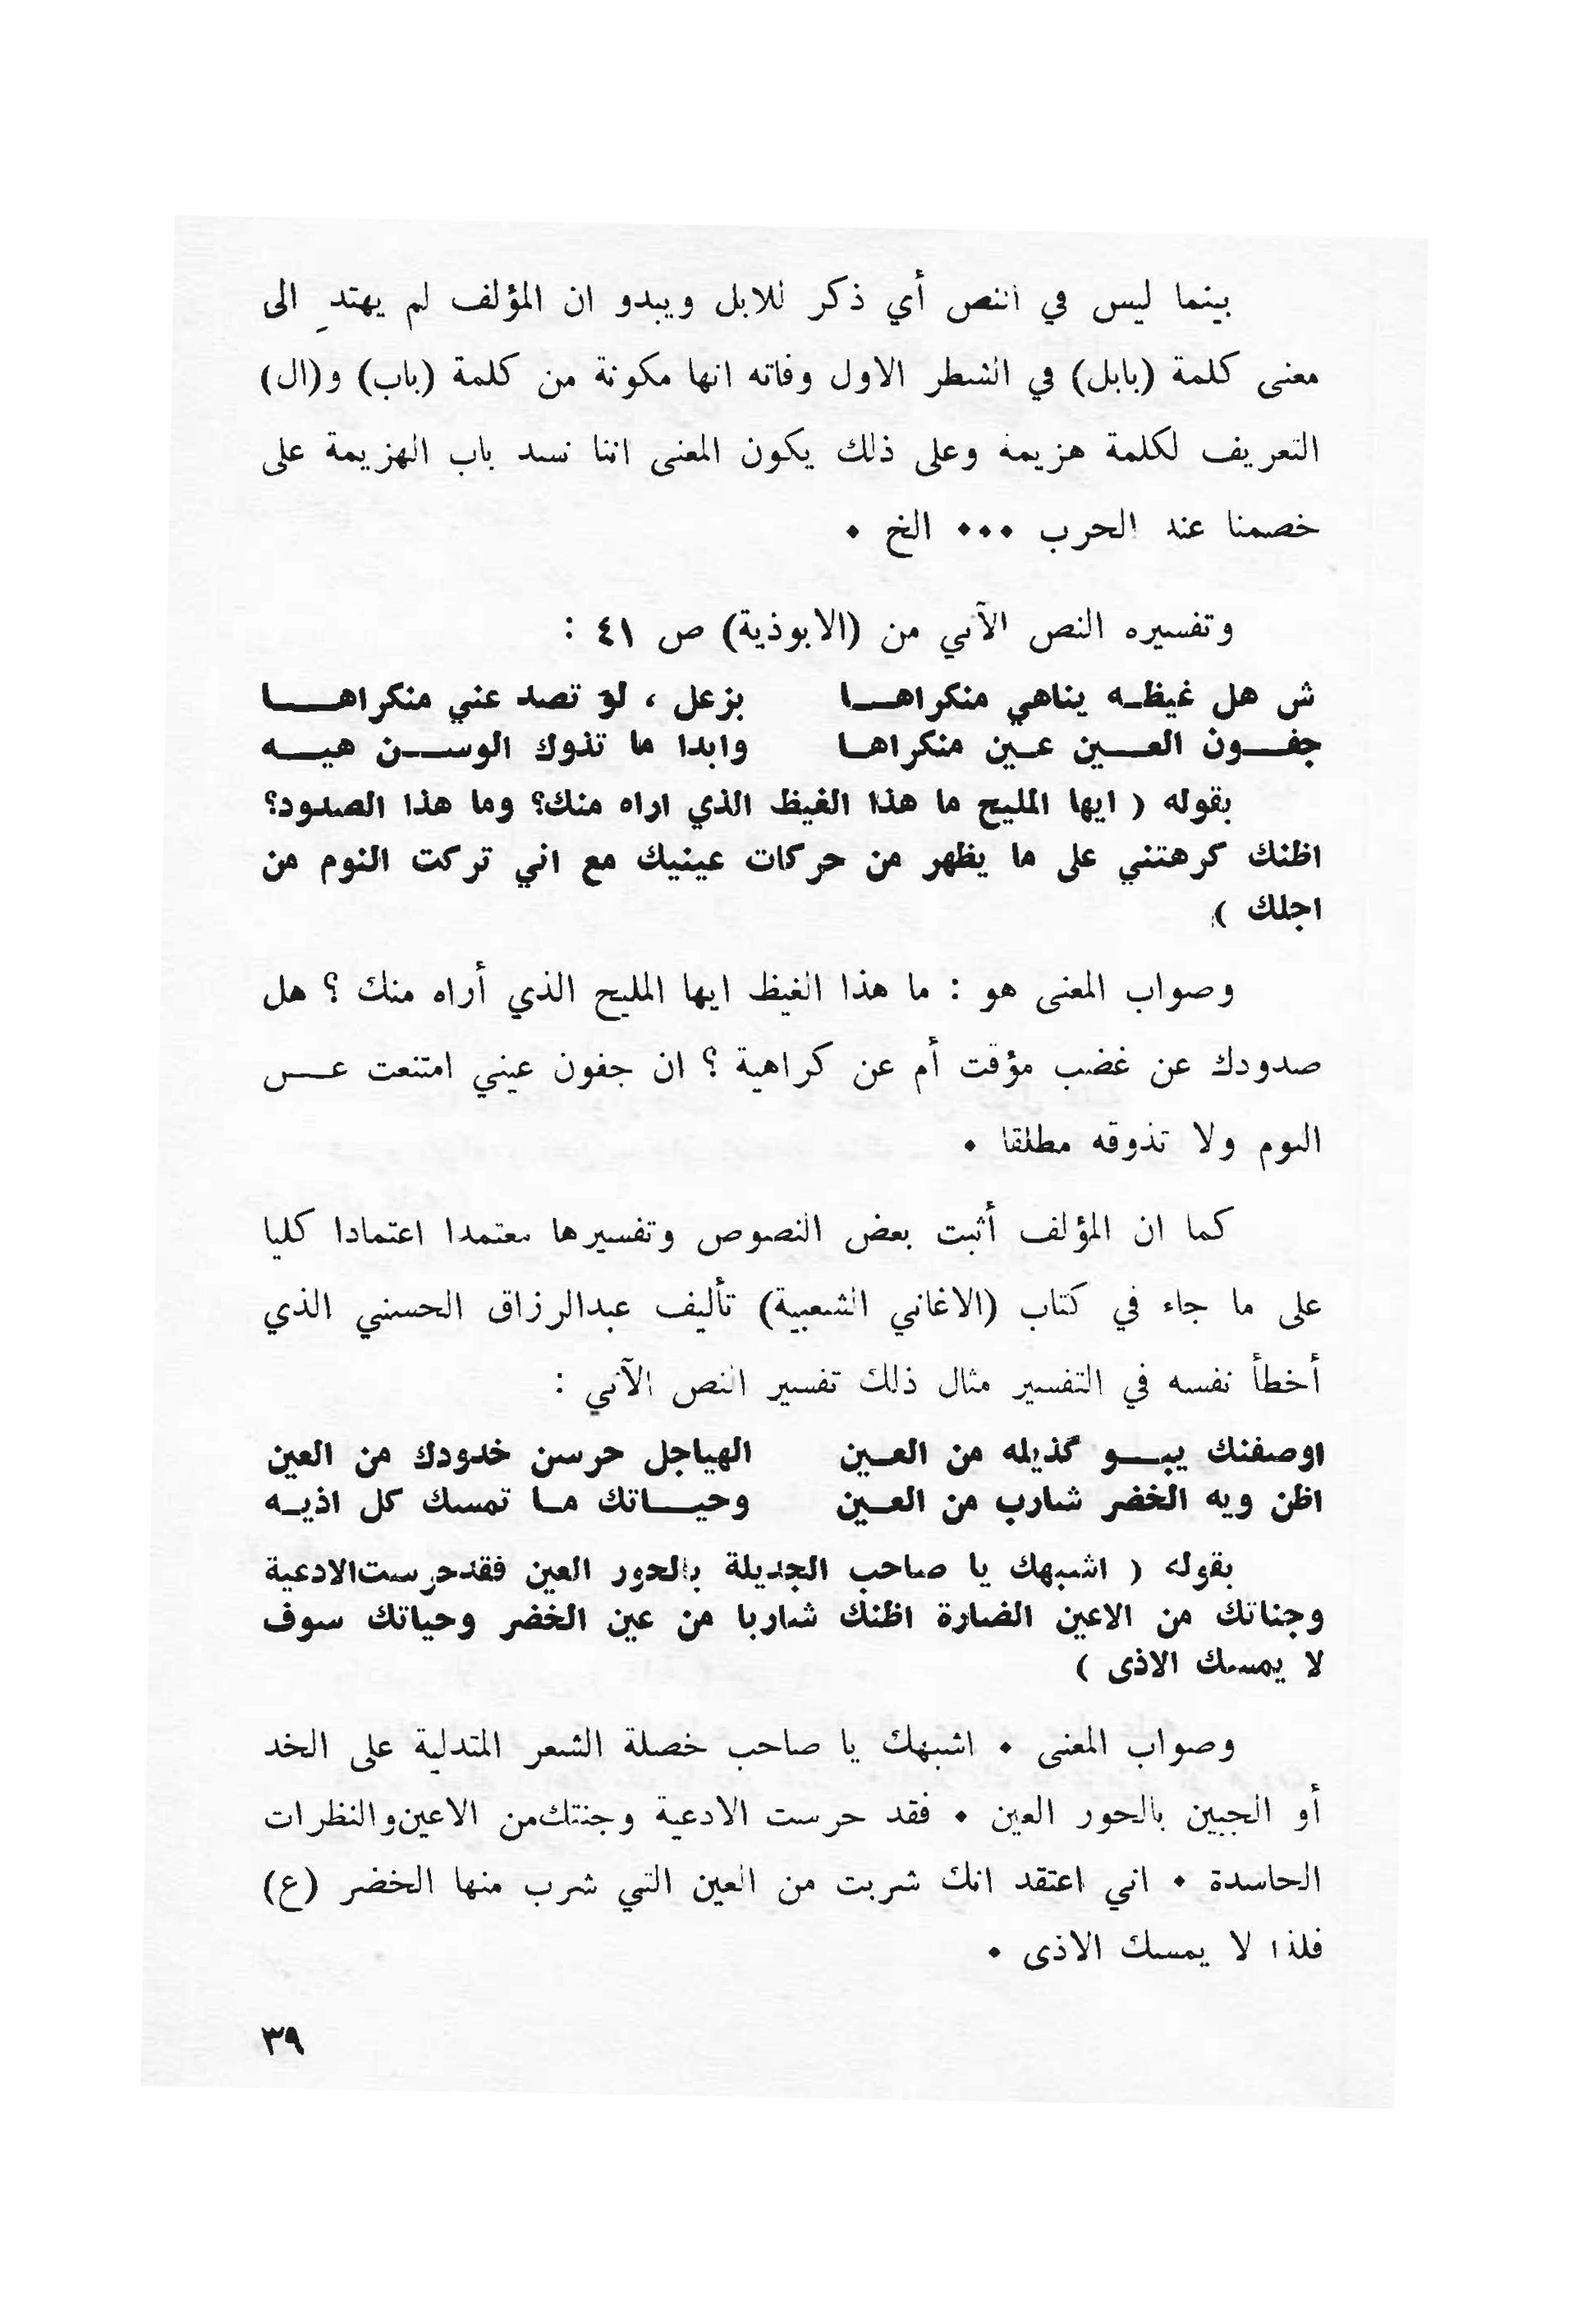 بينما ليس في النص أي ذكر للابل ويبدو ان المؤلف لم يهتدِ الى
معنى كلمة (بابل) في الشطر الاول وفاته انها مكونة من كلمة (باب) و(ال)
التعريف لكلمة هزيمة وعلى ذلك يكون المعنى اننا نسد باب الهزيمة على
خصمنا عند الحرب ٠٠٠ الخ ٠
وتفسيره النص الآتي من (الابوذية) ص ٤١ :
ش هل غيظه يناهي منكراها بزعل ، لو تصد عني منكراها
جفون العين عين منكراها وابدا ما تذوك الوسن هيه
بقوله ( ايها المليح ما هذا الغيظ الذي اراه منك؟ وما هذا الصدود؟
اظنك كرهتني على ما يظهر من حركات عينيك مع اني تركت النوم من
اجلك )
وصواب المعنى هو : ما هذا الغيظ ايها المليح الذي أراه منك ؟ هل
صدودك عن غضب مؤقت أم عن كراهية ؟ ان جفون عيني امتنعت عن
النوم ولا تذوقه مطلقا ٠
كما ان المؤلف أثبت بعض النصوص وتفسيرها معتمدا اعتمادا كليا
على ما جاء في كتاب (الاغاني الشعبية) تأليف عبدالرزاق الحسني الذي
أخطأ نفسه في التفسير مثال ذلك تفسير النص الآتي :
اوصفنك يبو گذيله من العين الهياجل حرسن خدودك من العين
اظن ويه الخضر شارب من العين وحياتك ما تمسك كل اذيه
بقوله ( اشبهك يا صاحب الجديلة بالحور العين فقدحرستالادعية
وجناتك من الاعين الضارة اظنك شاربا من عين الخضر وحياتك سوف
لا يمسك الاذى )
وصواب المعنى ٠ اشبهك يا صاحب خصلة الشعر المتدلية على الخد
أو الجبين بالحور العين ٠ فقد حرست الادعية وجنتكمن الاعينوالنظرات
الحاسدة ٠ اني اعتقد انك شربت من العين التي شرب منها الخضر (ع)
فلذا لا يمسك الاذى ٠
٣٩